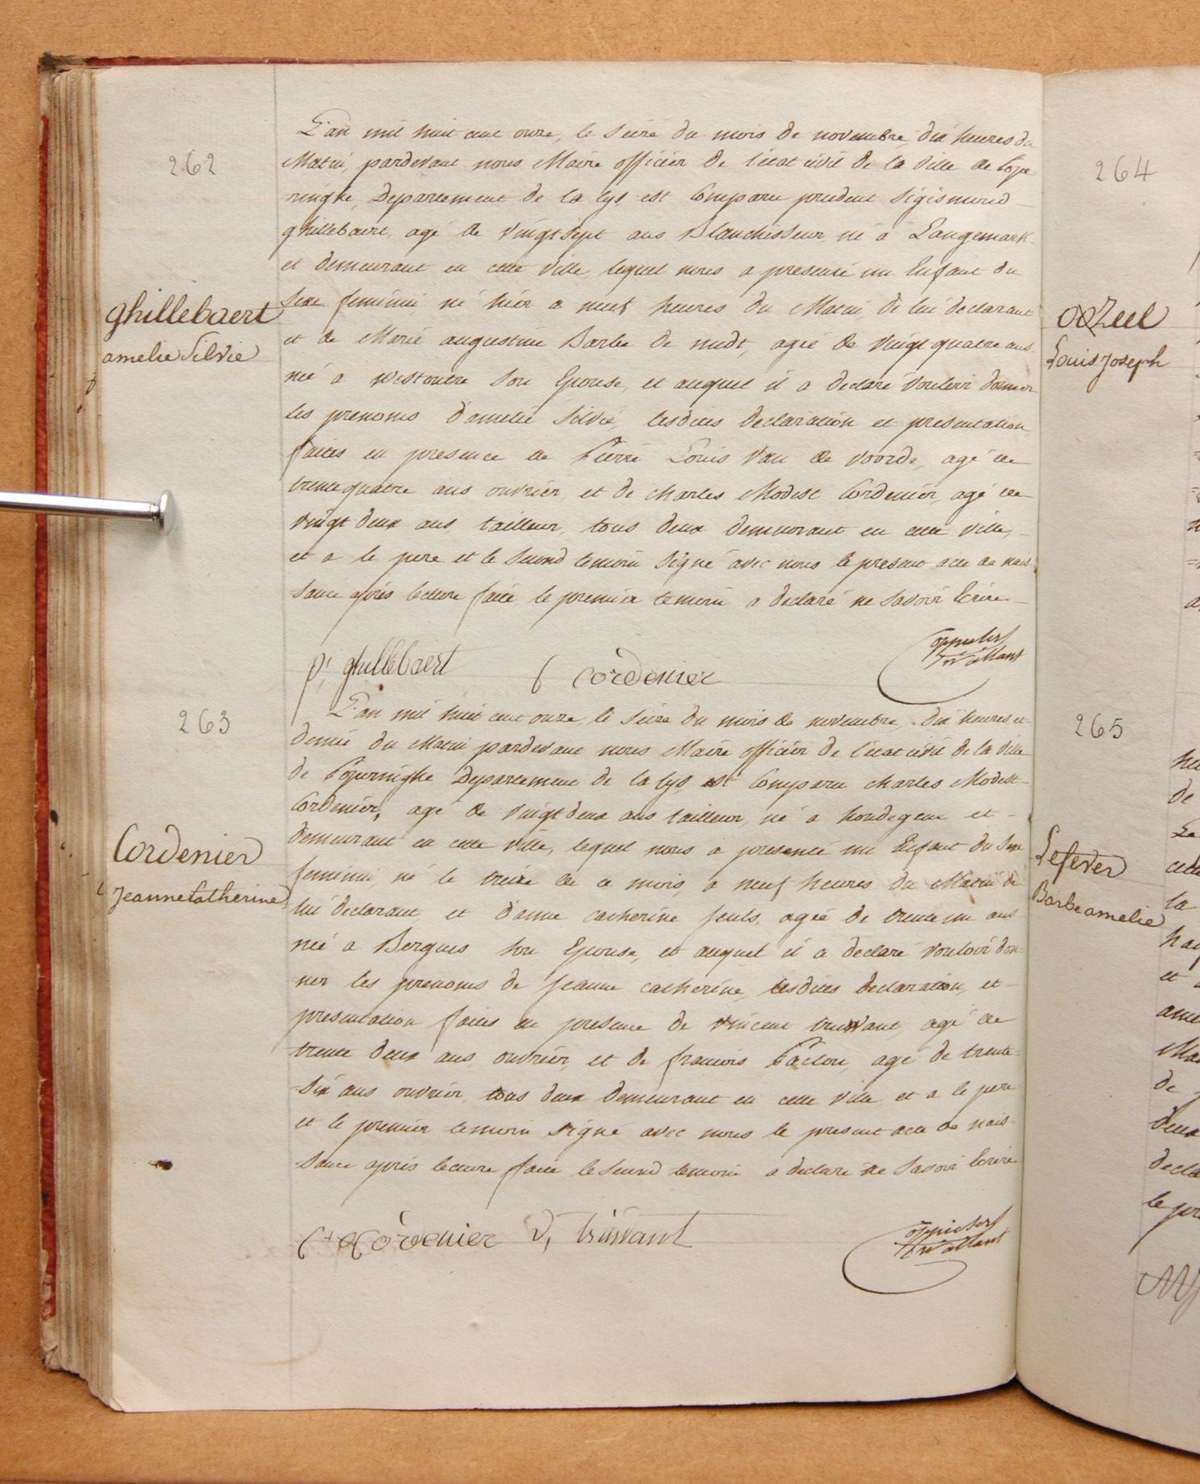 262
ghillebaert
amelie Silvie
L'an mil huit cent onze, le seize du mois de novembre, dix heures du
Matin, pardevant nous Maire officier de l'état civil de la ville de Pope
ringhe, Departement de la Lys est Comparu prudent Sigismond
ghillebaert, agé de vingt sept ans Blanchisseur né a Langemark
et demeurant en cette ville, lequel nous a presenté un Enfant du
Sexe feminin né hier a neuf heures du Matin de lui declarant
et de Marie augustine Barbe de nudt, agée de vingt quatre ans
née a Westoutre son Epouse, et auquel il a declaré vouloir donner
les prenoms d'amelie Silvie, lesdites declaration et presentation
faites en presence de Pierre Louis Van de voorde, agé de
trente quatre ans ouvrier, et de charles Modest Cordenier, agé de
vingt deux ans, tailleur, tous deux demeurant en cette ville,
et a le pere et le second temoin signé avec nous le present acte de nais
sance après lecture faite le premier temoin a declaré ne savoir Ecrire
p, ghillebaert C Cordenier
263
Cordenier
Jeanne Catherine
L'an mil huit cent onze, le seize du mois de novembre, dix heures et
demie du Matin pardevant nous Maire officier de l'état civil de la ville
de Poperinghe Departement de la Lys, est Comparu charles Modest
Cordenier, agé de vingt deux ans tailleur, né a hondegem et
demeurant en cette ville, lequel nous a presenté un Enfant du Sexe
feminin, né le treize de ce mois, a neuf heures du Matin de
lui declarant et d'anne catherine, agée de trente un ans
née a Bergues son Epouse, et auquel il a declaré vouloir don
ner les prenoms de Jeanne catherine, lesdites declaration, et
presentation faites en presence de vincent, agé de
trente deux ans ouvrier, et de francois, agé de trente
six ans ouvrier, tous deux demeurant en cette ville et a le pere
et le premier temoin signé avec nous le present acte de nais
sance après lecture faite le second temoin a declaré ne savoir Ecrire
Cordenier v,
264
Louis Joseph
265
Lefever
Barbe amelie